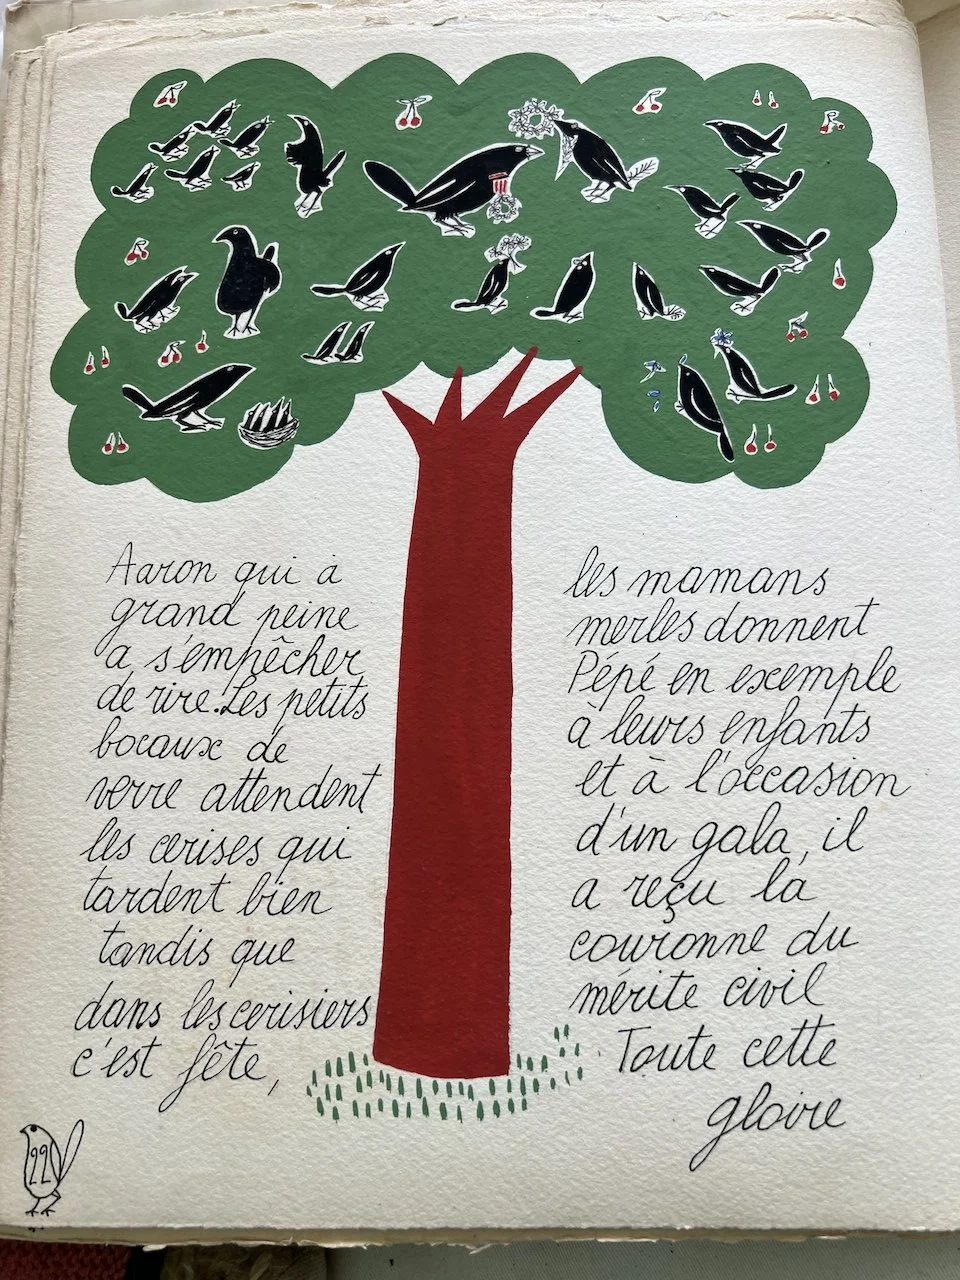 Aaron qui a
grand peine
a s'empêcher
de rire. Les petits
bocaux de
verre attendent
les cerises qui
tardent bien
tandis que
dans les cerisiers
c'est fête,
les mamans
merles donnent
Pépé en exemple
à leurs enfants
et à l'occasion
d'un gala, il
a reçu la
couronne du
mérite civil
Toute cette
gloire
22